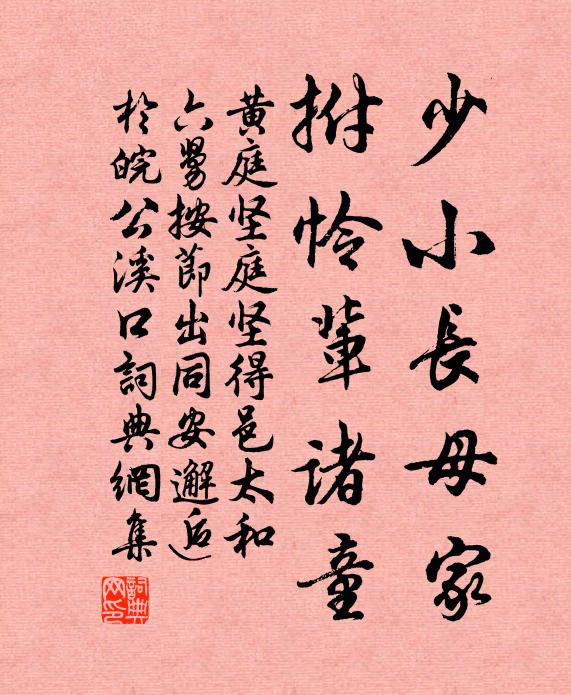 少小長母家
拊怜輩諸童
黄庭坚庭坚得邑太和
六舅按節出同安邂逅
於皖公溪口詞典網集
詞典网印